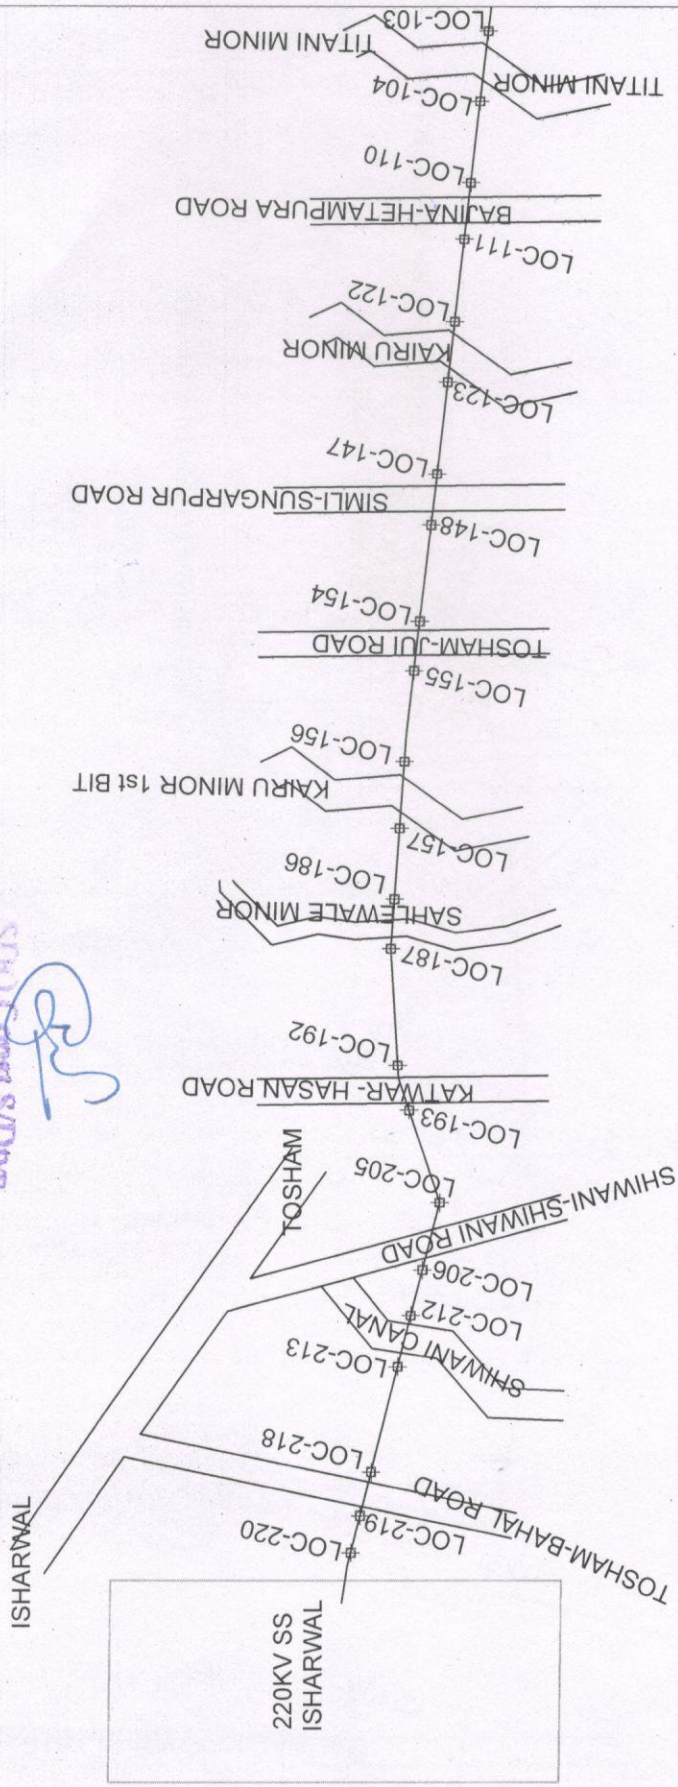 LOC-103
TITANI MINOR
TITANI MINOR
TITANI MINOR
LOC-104
LOC-110
BAJINA-HETAMPURA ROAD
LOC-111
LOC-122
KAIRU MINOR
LOC-123
LOC-147
SIMLI-SUNGARPUR ROAD
LOC-148
LOC-154
TOSHAM-JUI ROAD
LOC-155
LOC-156
KAIRU MINOR 1st BIT
LOC-157
LOC-186
SAHLEWALE MINOR
LOC-187
LOC-192
KATWAR- HASAN ROAD
LOC-193
TOSHAM
LOC-205
SHIWANI-SHIWANI ROAD
LOC-206
LOC-212
SHIWANI CANAL
LOC-213
LOC-218
TOSHAM-BAHAL ROAD
LOC-219
LOC-220
ISHARWAL
220KV SS
ISHARWAL